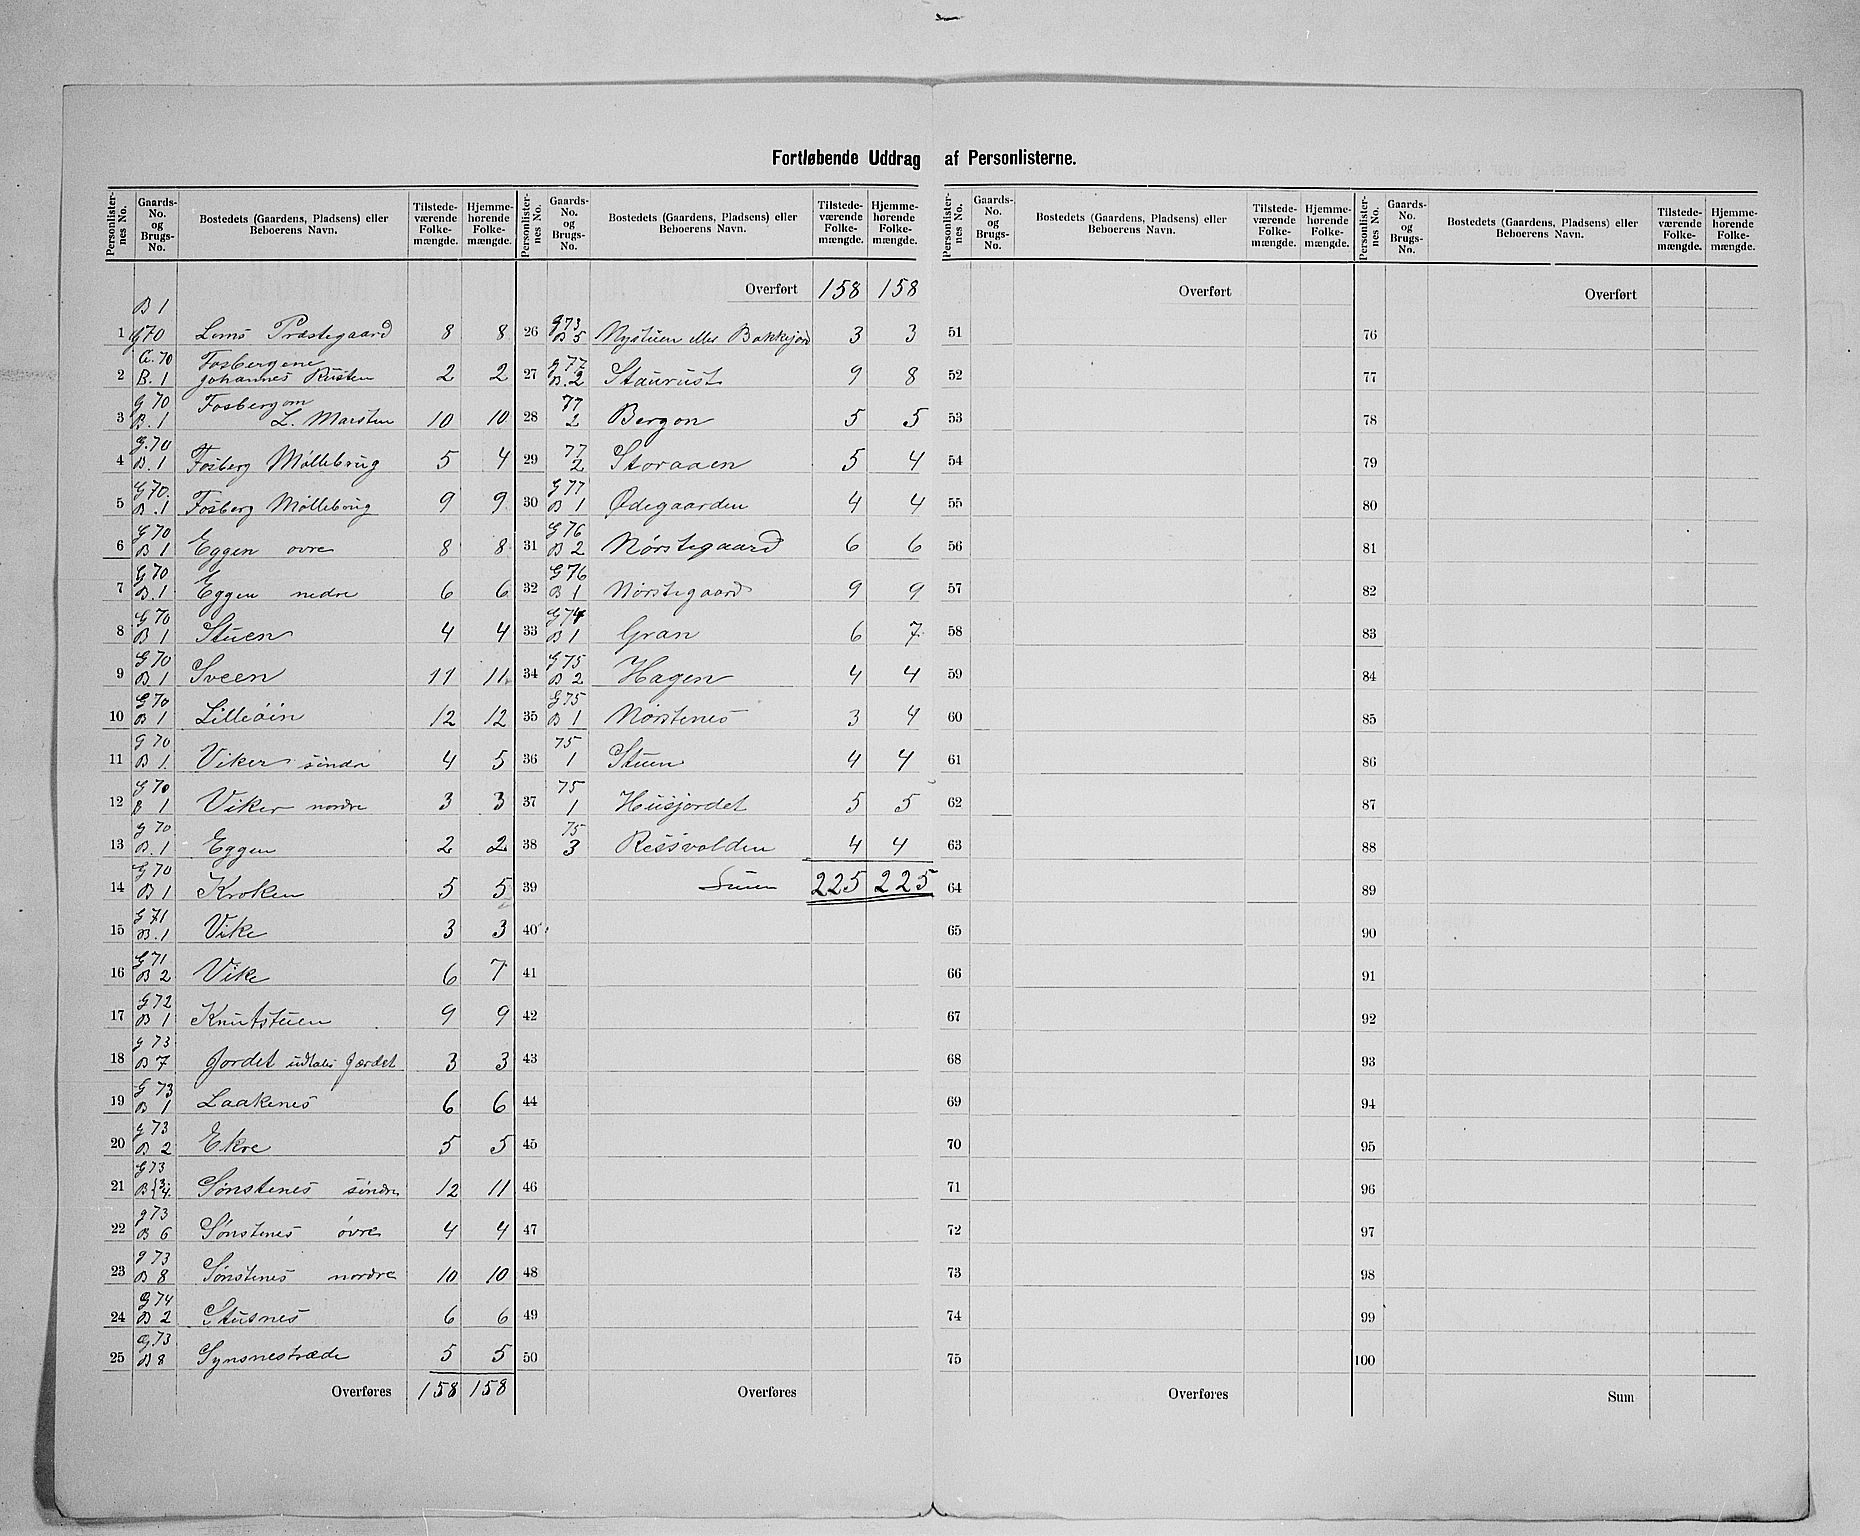 Fortløbende Uddrag af Personlisterne.
Personlister-nes No. | Gaards-No. og Brugs-No. | Bostedets (Gaardens, Pladsens) eller Beboerens Navn. | Tilstede-værende Folke-mængde. | Hjemme-hørende Folke-mængde.
1 | B 1 g 70 | Loms Præstegaard | 8 | 8
2 | G. 70 B. 1 | Fosbergene Johannes Rusten | 2 | 2
3 | g 70 B. 1 | Fosbergom L. Marstein | 10 | 10
4 | G. 70 B. 1 | Fosberg Møllebrug | 5 | 4
5 | G 70. B. 1 | Fosberg Møllebrug | 9 | 9
6 | G 70 B 1 | Eggen øvre | 8 | 8
7 | G 70 B. 1 | Eggen nedre | 6 | 6
8 | G 70 B 1 | Stuen | 4 | 4
9 | G 70 B 1 | Sveen | 11 | 11
10 | G 70 B 1 | Lilleöin | 12 | 12
11 | g 70 B 1. | Viker söndre | 4 | 5
12 | G 70 B 1 | Viker nordre | 3 | 3
13 | g 70 B. 1 | Eggen | 2 | 2
14 | G 70 B 1 | Kroken | 5 | 5
15 | G 71 B. 1 | Vike | 3 | 3
16 | G 71 B 2 | Vike | 6 | 7
17 | G 72 B 1 | Knutstuen | 9 | 9
18 | g 73 B 7 | Jordet udtales Jærdet | 3 | 3
19 | G 73 B 1 | Laakenes | 6 | 6
20 | g 73 B 2 | Ekre | 5 | 5
21 | G 73 B {3/4. | Sønstenes söndre | 12 | 11
22 | g 73 B 6 | Sønstenes övre | 4 | 4
23 | g 73 B 8 | Sønstenes nordre | 10 | 10
24 | G 74 B 2 | Stusnes | 6 | 6
25 | G. 73 B 8 | Synsnestræde | 5 | 5
Overføres | 158 | 158
Personlister-nes No. | Gaards-No. og Brugs-No. | Bostedets (Gaardens, Pladsens) eller Beboerens Navn. | Tilstede-værende Folke-mængde. | Hjemme-hørende Folke-mængde.
Overført | 158 | 158
26 | g 73 B 5 | Nystuen eller Bakkejord | 3 | 3
27 | g 77 B. 2 | Staurust | 9 | 8
28 | 77 2 | Bergon | 5 | 5
29 | 77 2 | Storaaen | 5 | 4
30 | G 77 B 1 | Ødegaarden | 4 | 4
31 | G 76 B 2 | Nørstegaard | 6 | 6
32 | G 76 B 1 | Nørstegaard | 9 | 9
33 | G 74 B 1 | Gran | 6 | 7
34 | G 75 B 2 | Hagen | 4 | 4
35 | G 75 B 1 | Nørstenes | 3 | 4
36 | 75 1 | Stuen | 4 | 4
37 | 75 1 | Husjordet | 5 | 5
38 | 75 3 | Ressvolden | 4 | 4
39 | Sum | 225 | 225
40
41
42
43
44
45
46
47
48
49
50
Overføres
Personlister-nes No. | Gaards-No. og Brugs-No. | Bostedets (Gaardens, Pladsens) eller Beboerens Navn. | Tilstede-værende Folke-mængde. | Hjemme-hørende Folke-mængde.
Overført
51
52
53
54
55
56
57
58
59
60
61
62
63
64
65
66
67
68
69
70
71
72
73
74
75
Overføres
Personlister-nes No. | Gaards-No. og Brugs-No. | Bostedets (Gaardens, Pladsens) eller Beboerens Navn. | Tilstede-værende Folke-mængde. | Hjemme-hørende Folke-mængde.
Overført
76
77
78
79
80
81
82
83
84
85
86
87
88
89
90
91
92
93
94
95
96
97
98
99
100
Sum